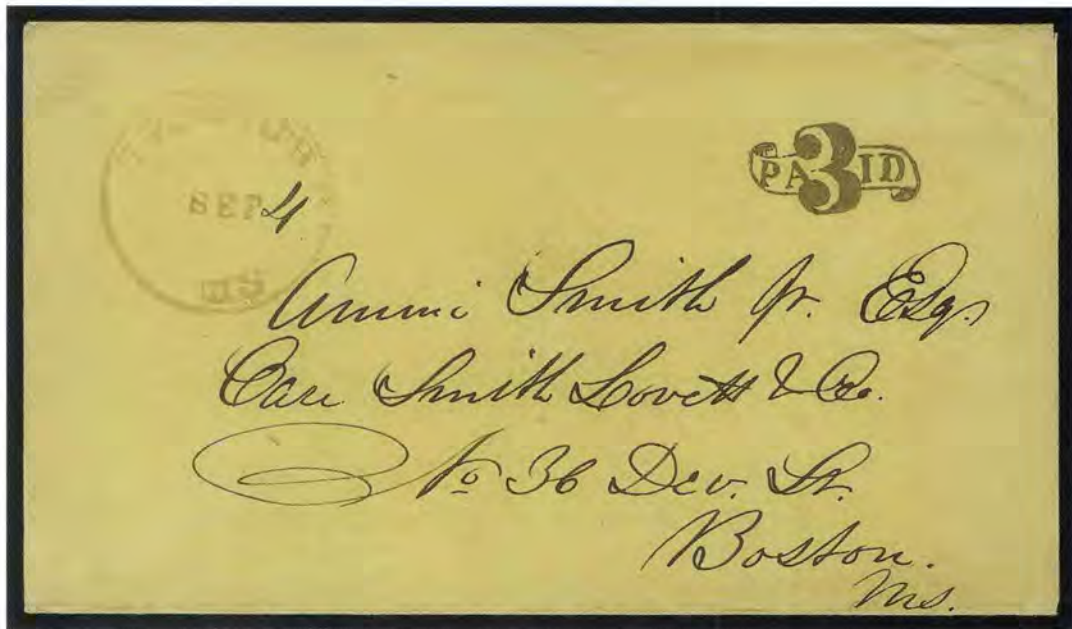 SEP 4
MS
PAID 3
Ammi Smith Jr. Esq.
Care Smith Lovett & Co.
No 36 Dev. St.
Boston.
Ms.